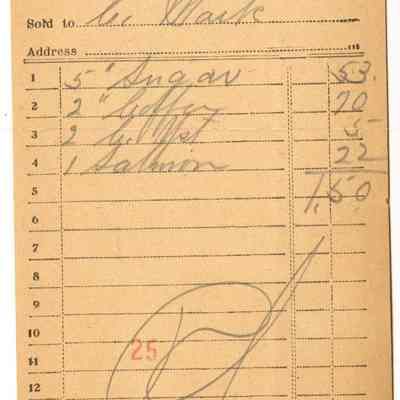 Sold to
Address
1 5 " Sugar 53.
2 2 " Coffey 70
3 2 5
4 1 Salmon 22
5 1.50
6
7
8
9
10
25
11
12